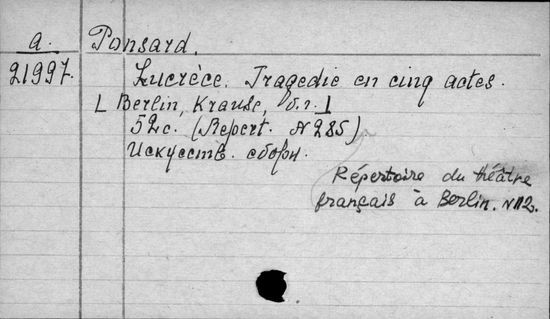 a. Ponsard.
21997. Lucrèce. Tragedie en cinq actes.
[Berlin, Krause, б.г.]
52с. (Repert. N 285).
Искусств. сборн.
Répertoire du théâtre
français à Berlin. N 112.